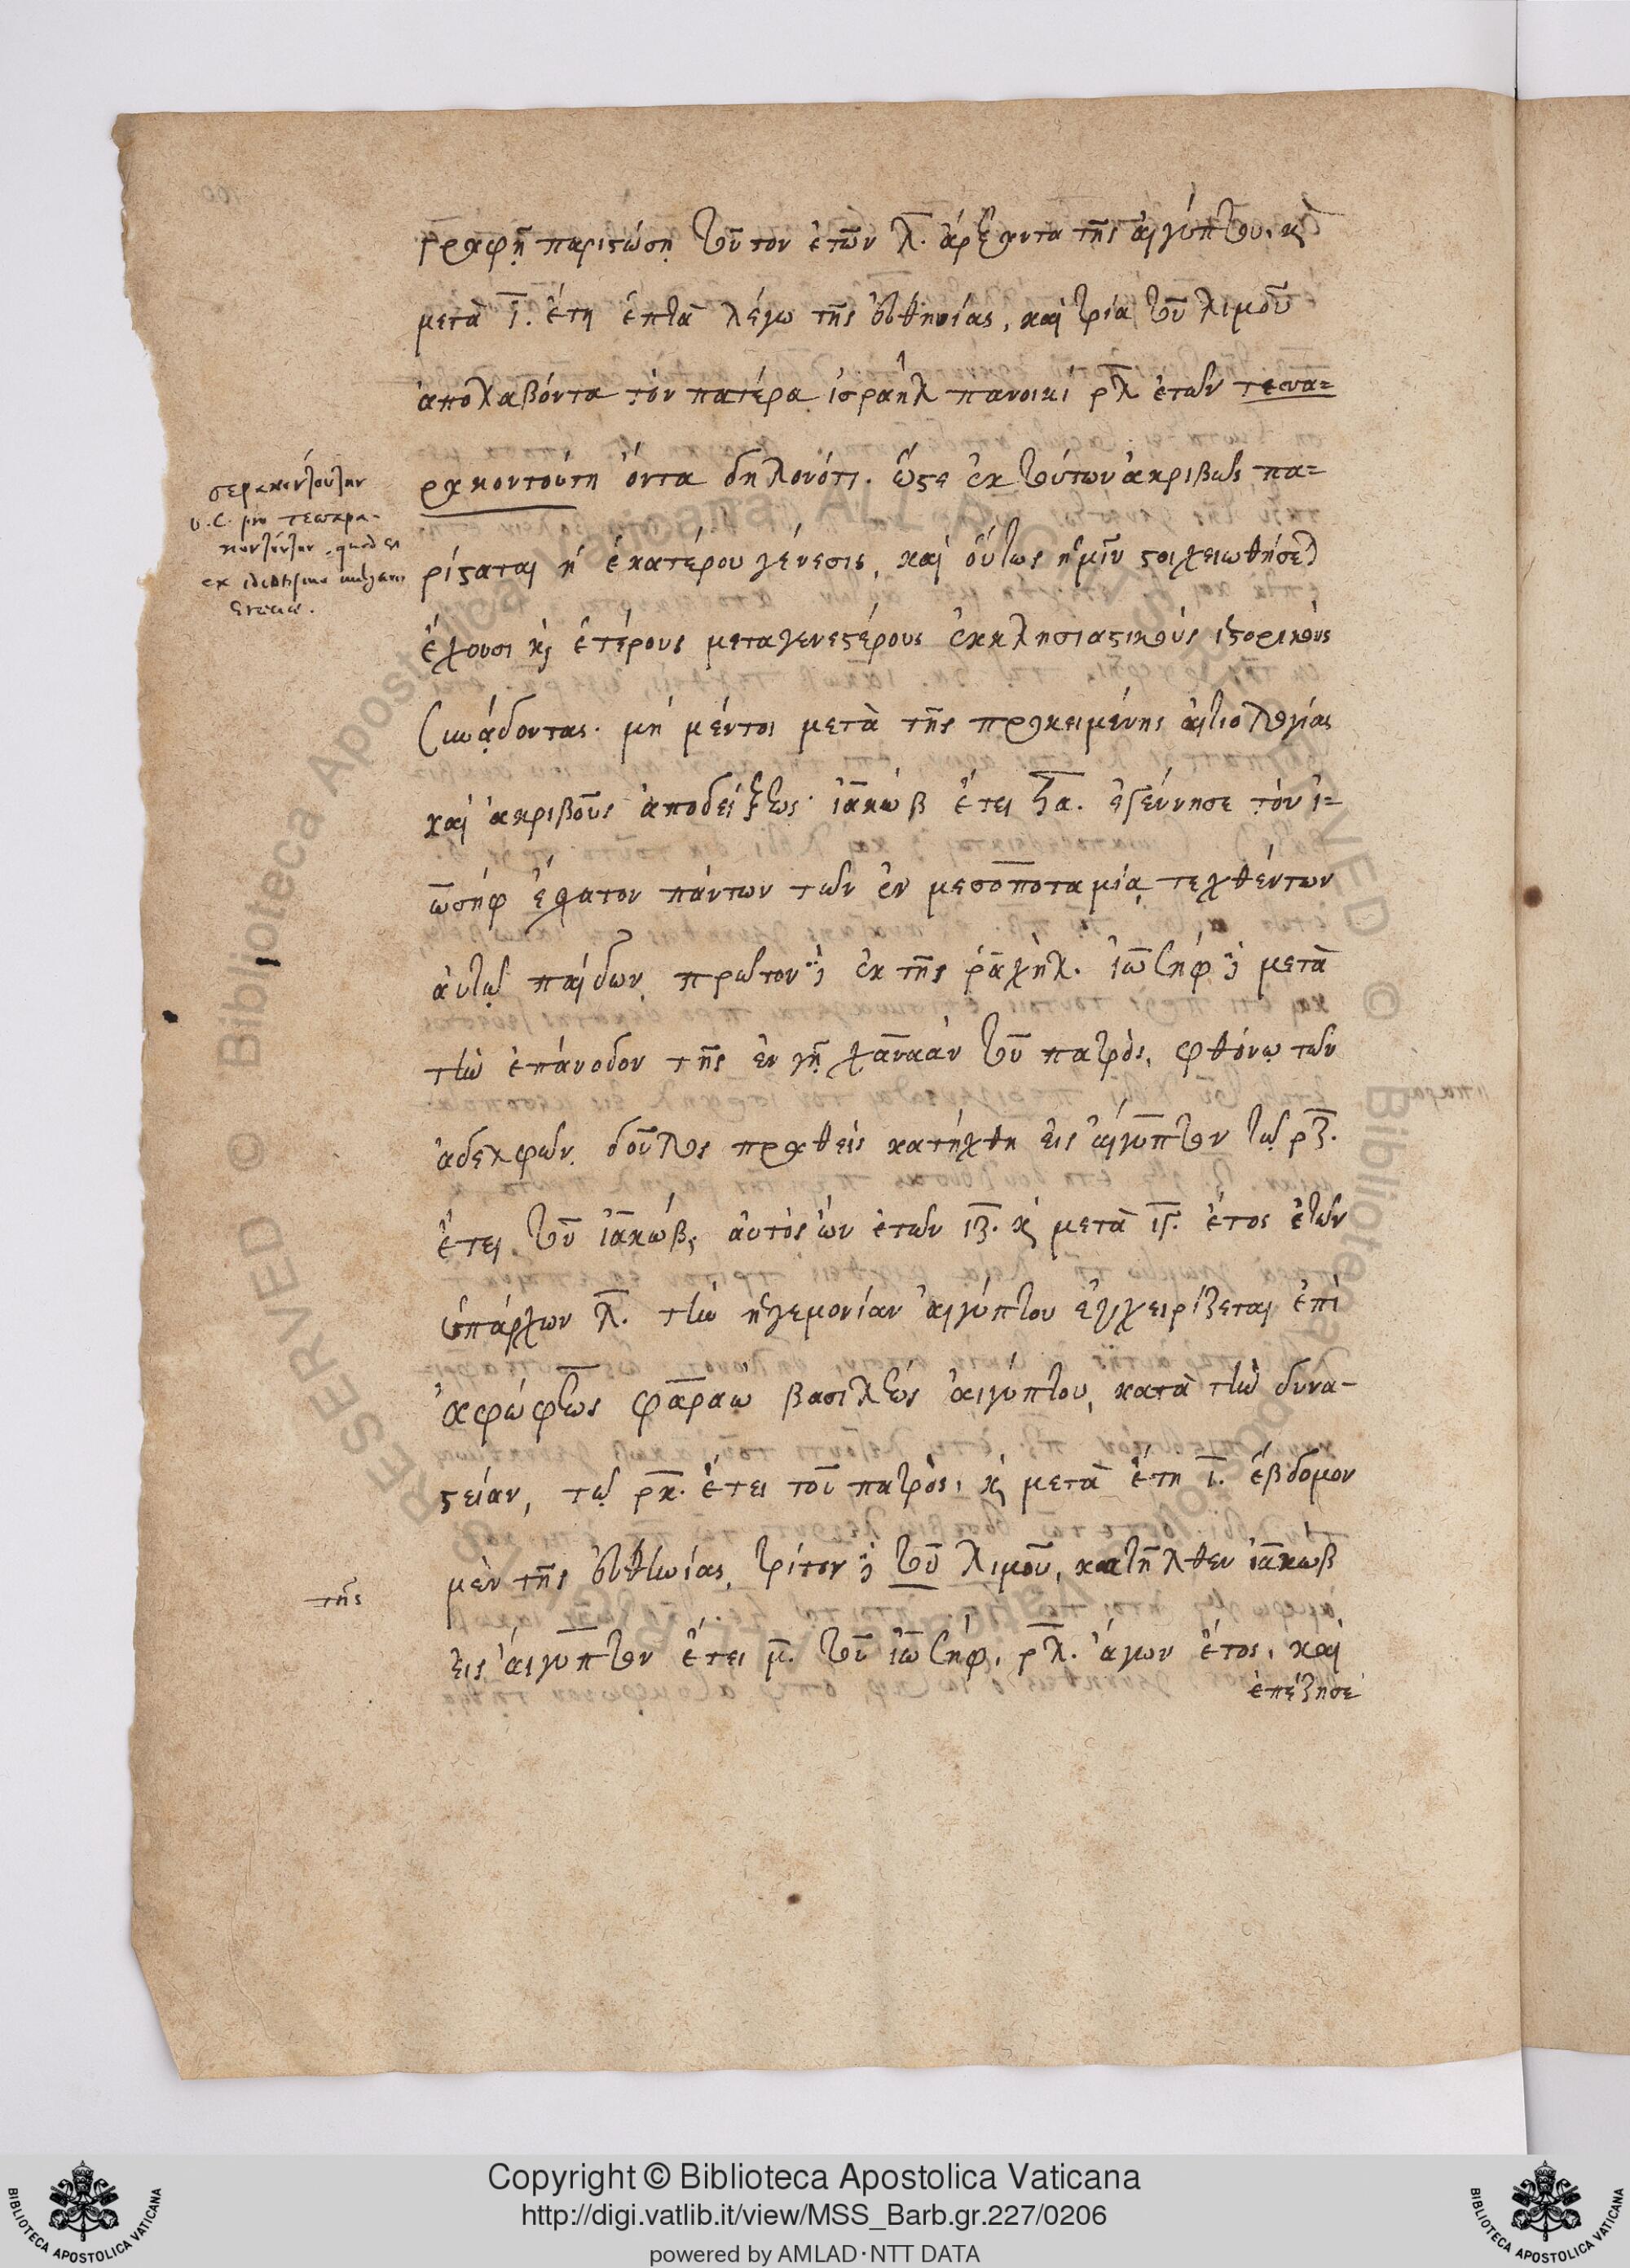 γραφὴ παριστώση τοῦτον ἐτῶν λ. ἄρξαντα τῆς αἰγύπτου. κ̀
μετὰ ι. ἔτη ἑπτὰ λέγω τῆς εὐθηνίας, καὶ τρία τοῦ λιμοῦ
ἀπολαβόντα τὸν πατέρα ἰσραὴλ πανοικὶ ρλ ἐτῶν τεσσα=
ρακοντούτη ὄντα δηλονότι. ὥστε ἐκ τούτων ἀκριβῶς πα=
ρίσταται ἡ ἑκατέρου γένεσις, καὶ οὕτως ἡμῖν στοιχειωθήσεται
ἔχουσι κ̀ ἑτέρους μεταγενεστέρους ἐκκλησιαστικοὺς ἱστορικοὺς
συνάδοντας. μὴ μέντοι μετὰ τῆς προκειμένης αἰτιολογίας
καὶ ἀκριβοῦς ἀποδείξεως· ἰακὼβ ἔτει ϟα. ἐγέννησε τὸν ἰ=
ωσὴφ ἔσχατον πάντων τῶν ἐν μεσοποταμίᾳ τεχθέντων
αὐτῷ παίδων, πρῶτον δὲ ἐκ τῆς ῥαχήλ. ἰωσὴφ δὲ μετὰ
τὴν ἐπάνοδον τῆς ἐν γῇ χαναὰν τοῦ πατρὸς, φθόνῳ τῶν
ἀδελφῶν δοῦλος πραθεὶς κατήχθη εἰς αἴγυπτον τῷ ρζ.
ἔτει τοῦ ἰακώβ, αὐτὸς ὢν ἐτῶν ιζ. κ̀ μετὰ ιγ. ἔτος ἐτῶν
ὑπάρχων λ. τὴν ἡγεμονίαν αἰγύπτου ἐγχειρίζεται ἐπὶ
ἀφώφεως φαραω βασιλέως αἰγύπτου, κατὰ τὴν δυνα-
στείαν, τῷ ρκ. ἔτει τοῦ πατρὸς, κ̀ μετὰ ἔτη ι. ἕβδομον
μὲν τῆς εὐθηνίας, τρίτον δὲ τοῦ λιμοῦ, κατῆλθεν ἰακὼβ
τῆς
εἰς αἴγυπτον ἔτει μ. τοῦ ἰωσὴφ, ρλ. ἄγων ἔτος, καὶ
ἐπέζησε
Copyright © Biblioteca Apostolica Vaticana
http://digi.vatlib.it/view/MSS_Barb.gr.227/0206
powered by AMLAD·NTT DATA
BIBLIOTECA APOSTOLICA VATICANA
BIBLIOTECA APOSTOLICA VATICANA